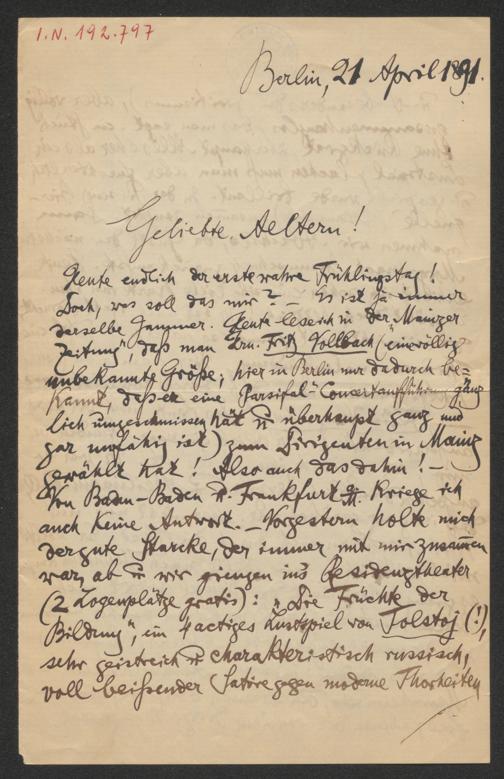 I.N. 192.797
Berlin, 21 April 1891.
Geliebte Aeltern!
Heute endlich der erste wahre Frühlingstag!
Doch, was soll das mir? – Es ist ja immer
derselbe Jammer. Heute lese ich in "der Mainzer
Zeitung", daß man Hrn. Fritz Vollbach (eine völlig
unbekannte Größe; hier in Berlin nur dadurch be-
kannt, daß er eine "Parsifal"-Concertaufführung gänz
lich umgeschmissen hat u überhaupt ganz und
gar unfähig ist) zum Dirigenten in Mainz
gewählt hat! Also auch das dahin! –
Von Baden-Baden u. Frankfurt a/M. kriege ich
auch keine Antwort. – Vorgestern holte mich
der gute Starcke, der immer mit mir zusammen
war, ab u wir giengen ins Residenztheater
(2 Logenplätze gratis): "Die Früchte der
Bildung", ein 4actiges Lustspiel von Tolstoj (!),
sehr geistreich u charakteristisch russisch,
voll beißender Satire gegen moderne Thorheiten